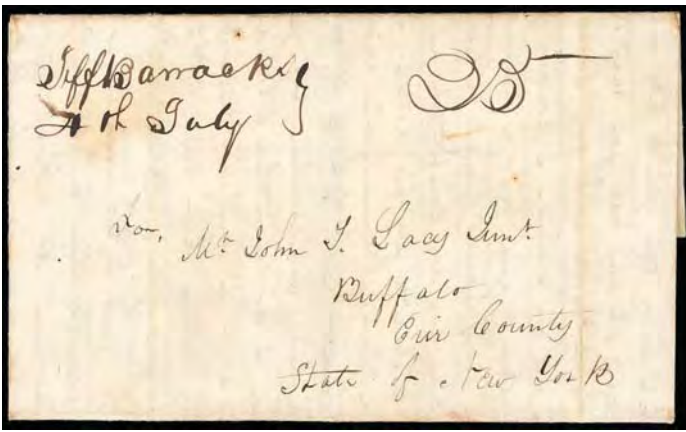 Jeff Barracks
4th July
25
For,
Mr John T. Lacy Junr.
Buffalo
Erie County
State of New York